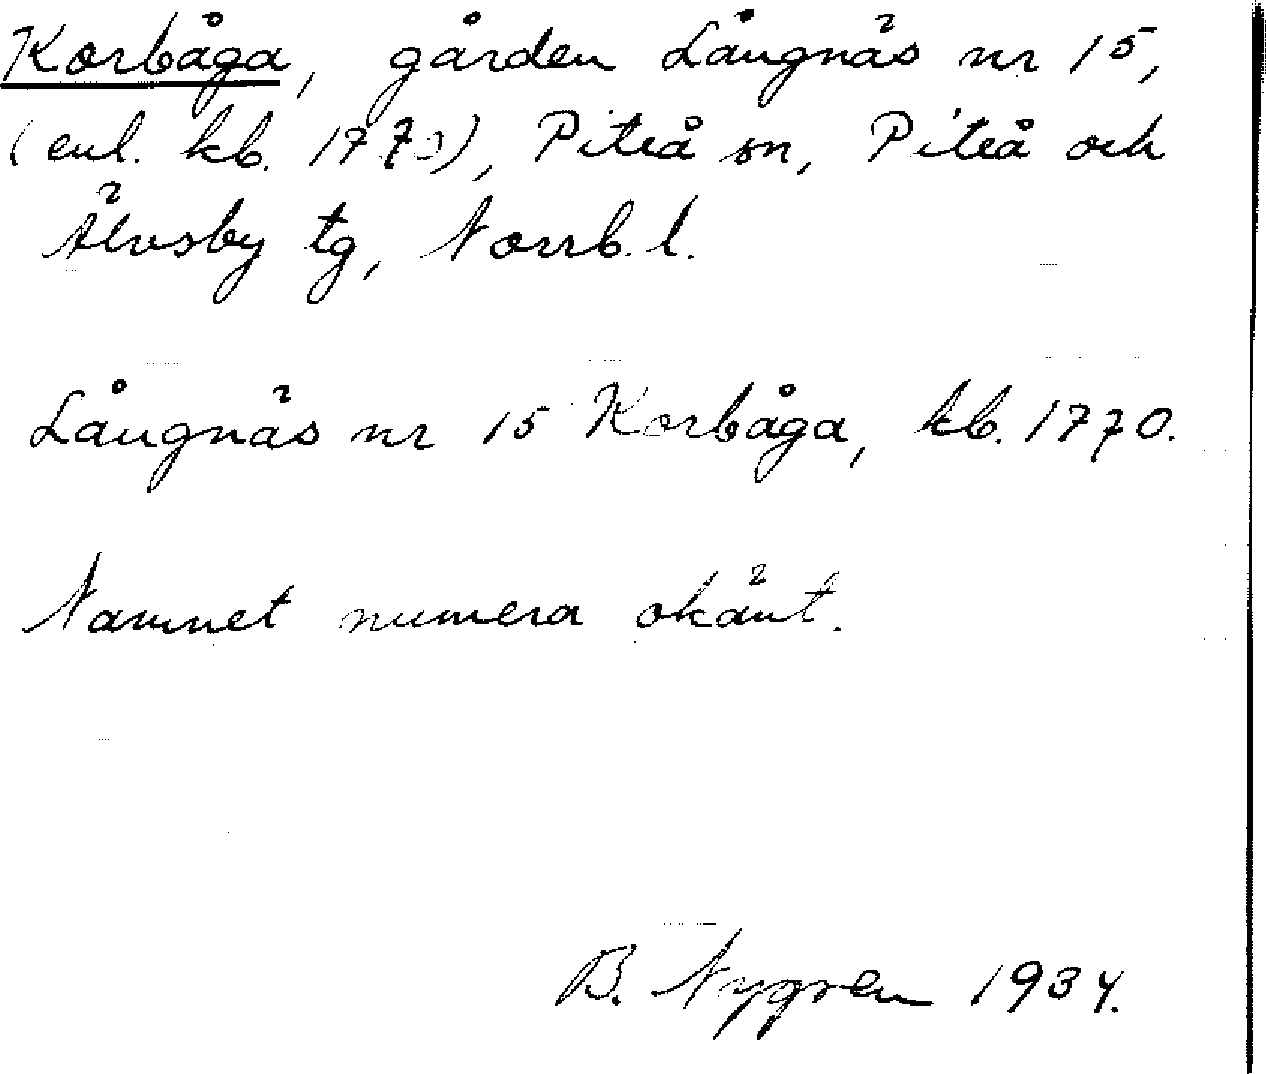 Korbåga, gården Långnäs nr 15,
(enl. kb. 1770), Piteå sn, Piteå och
Älvsby tg, Norrb. l.
Långnäs nr 15 Korbåga, kb. 1770.
Namnet numera okänt.
B. Nygren 1934.